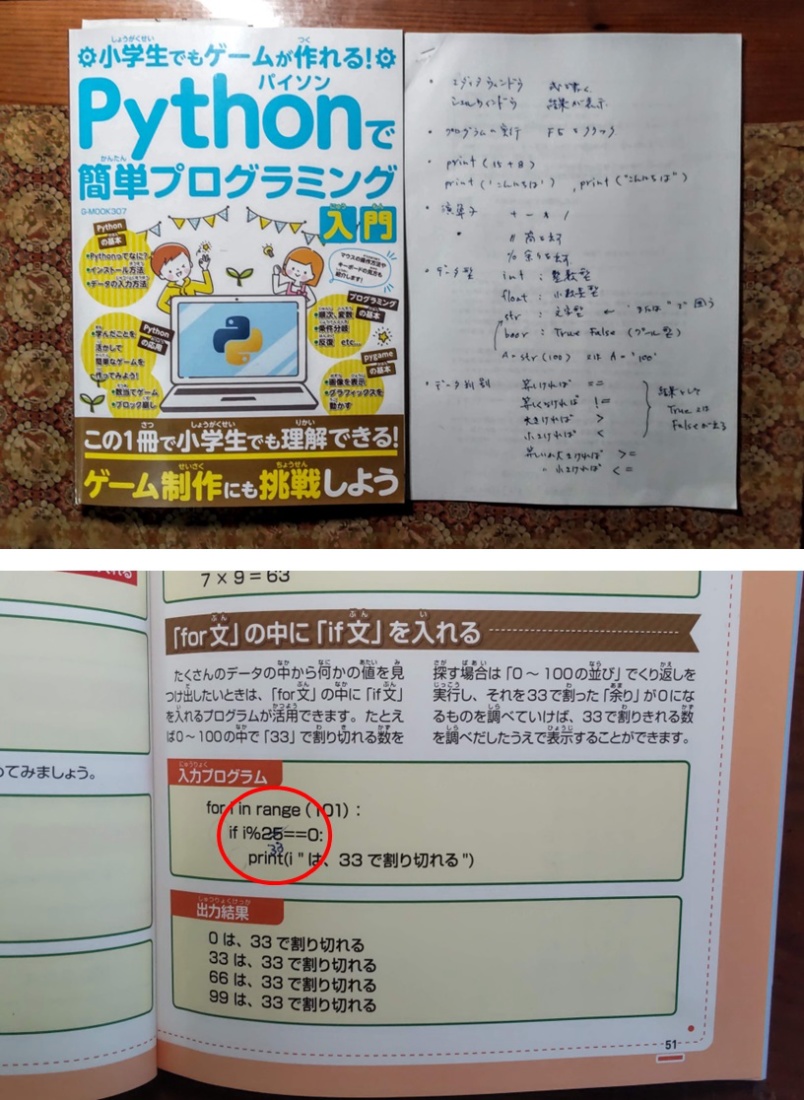 小学生でもゲームが作れる!
しょうがくせい
つく
パイソン
Pythonで
かんたん
簡単プログラミング
G-MOOK307
入門
にゅうもん
Python
の基本
•Pythonってなに?
•インストール方法
•データの入力方法
マウスの操作方法や
キーボードの見方も
紹介します!
プログラミング
の基本
•順次、変数
•条件分岐
•反復 etc...
Python
の応用
•学んだことを
活かして
簡単なゲームを
作ってみよう!
•数当てゲーム
•ブロック崩し
pygame
の基本
•画像を表示
•グラフィックスを
動かす
この1冊で小学生でも理解できる!
さつ
しょうがくせい
りかい
ゲーム制作にも挑戦しよう
せいさく
ちょうせん
• エディタウィンドウ 式を書く
シェルウィンドウ 結果が表示
• プログラムの実行 F5をクリック
• print (15 + 8)
print ('こんにちは') , print ("こんにちは")
• 演算子 + - * /
// 商を出す
% 余りを出す
• データ型 int : 整数型
float : 小数点型
str : 文字型 ← ' または " で囲う
boor : True False (ブール型)
A = str(100) は A = '100'
• データ判別 等しければ ==
等しくなければ !=
大きければ >
小さければ <
等しいか大きければ >=
〃 小さければ <=
結果として
True とは
Falseが出る
7 × 9 = 63
「for文」の中に「if文」を入れる
ぶん
なか
ぶん
い
たくさんのデータの中から何かの値を見
つけ出したいときは、「for文」の中に「if文」
を入れるプログラムが活用できます。たとえ
ば0~100の中で「33」で割り切れる数を
探す場合は「0~100の並び」でくり返しを
実行し、それを33で割った「余り」が0にな
るものを調べていけば、33で割りきれる数
を調べだしたうえで表示することができます。
ってみましょう。
にゅうりょく
入力プログラム
for i in range (101) :
if i%25==0:
33
print(i " は、33 で割り切れる ")
しゅつりょくけっか
出力結果
0 は、33 で割り切れる
33 は、33 で割り切れる
66 は、33 で割り切れる
99 は、33 で割り切れる
51